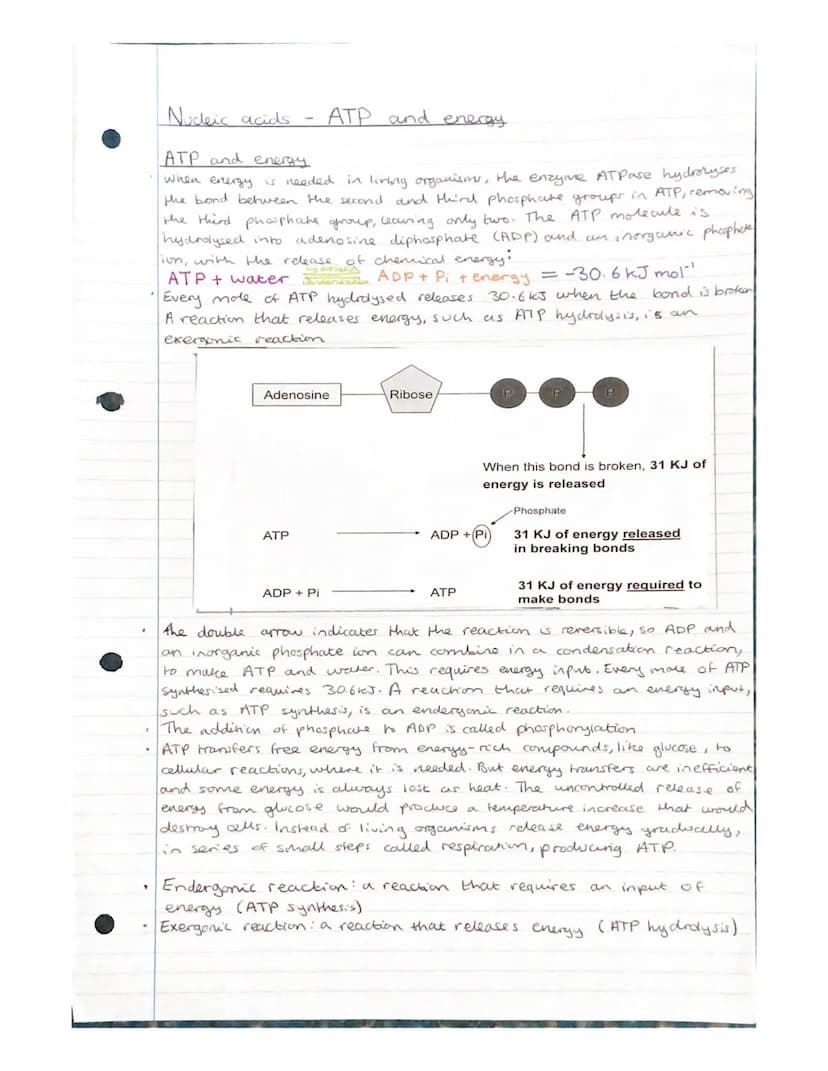 Nucleic acids - ATP and energy
ATP and energy
When energy is needed in living organisms, the enzyme ATPase hydrolyses
the bond between the second and third phosphate groups in ATP, removing
the third phosphate group, leaving only two. The ATP molecule is
hydrolysed into adenosine diphosphate (ADP) and an inorganic phosphate
ion, with the release of chemical energy:
ATP + water hydrolysis condensation ADP + Pi + energy = -30.6 kJ mol⁻¹
Every mole of ATP hydrolysed releases 30.6kJ when the bond is broken
A reaction that releases energy, such as ATP hydrolysis, is an
exergonic reaction
Adenosine Ribose P P P
When this bond is broken, 31 KJ of
energy is released
Phosphate
ATP ADP + Pi 31 KJ of energy released
in breaking bonds
ADP + Pi ATP 31 KJ of energy required to
make bonds
The double arrow indicates that the reaction is reversible, so ADP and
an inorganic phosphate ion can combine in a condensation reaction,
to make ATP and water. This requires energy input. Every mole of ATP
synthesised requires 30.6kJ. A reaction that requires an energy input,
such as ATP synthesis, is an endergonic reaction.
The addition of phosphate to ADP is called phosphorylation
ATP transfers free energy from energy-rich compounds, like glucose, to
cellular reactions, where it is needed. But energy transfers are inefficient
and some energy is always lost as heat. The uncontrolled release of
energy from glucose would produce a temperature increase that would
destroy cells. Instead of living organisms release energy gradually,
in series of small steps called respiration, producing ATP.
Endergonic reaction: a reaction that requires an input of
energy (ATP synthesis)
Exergonic reaction: a reaction that releases energy (ATP hydrolysis)